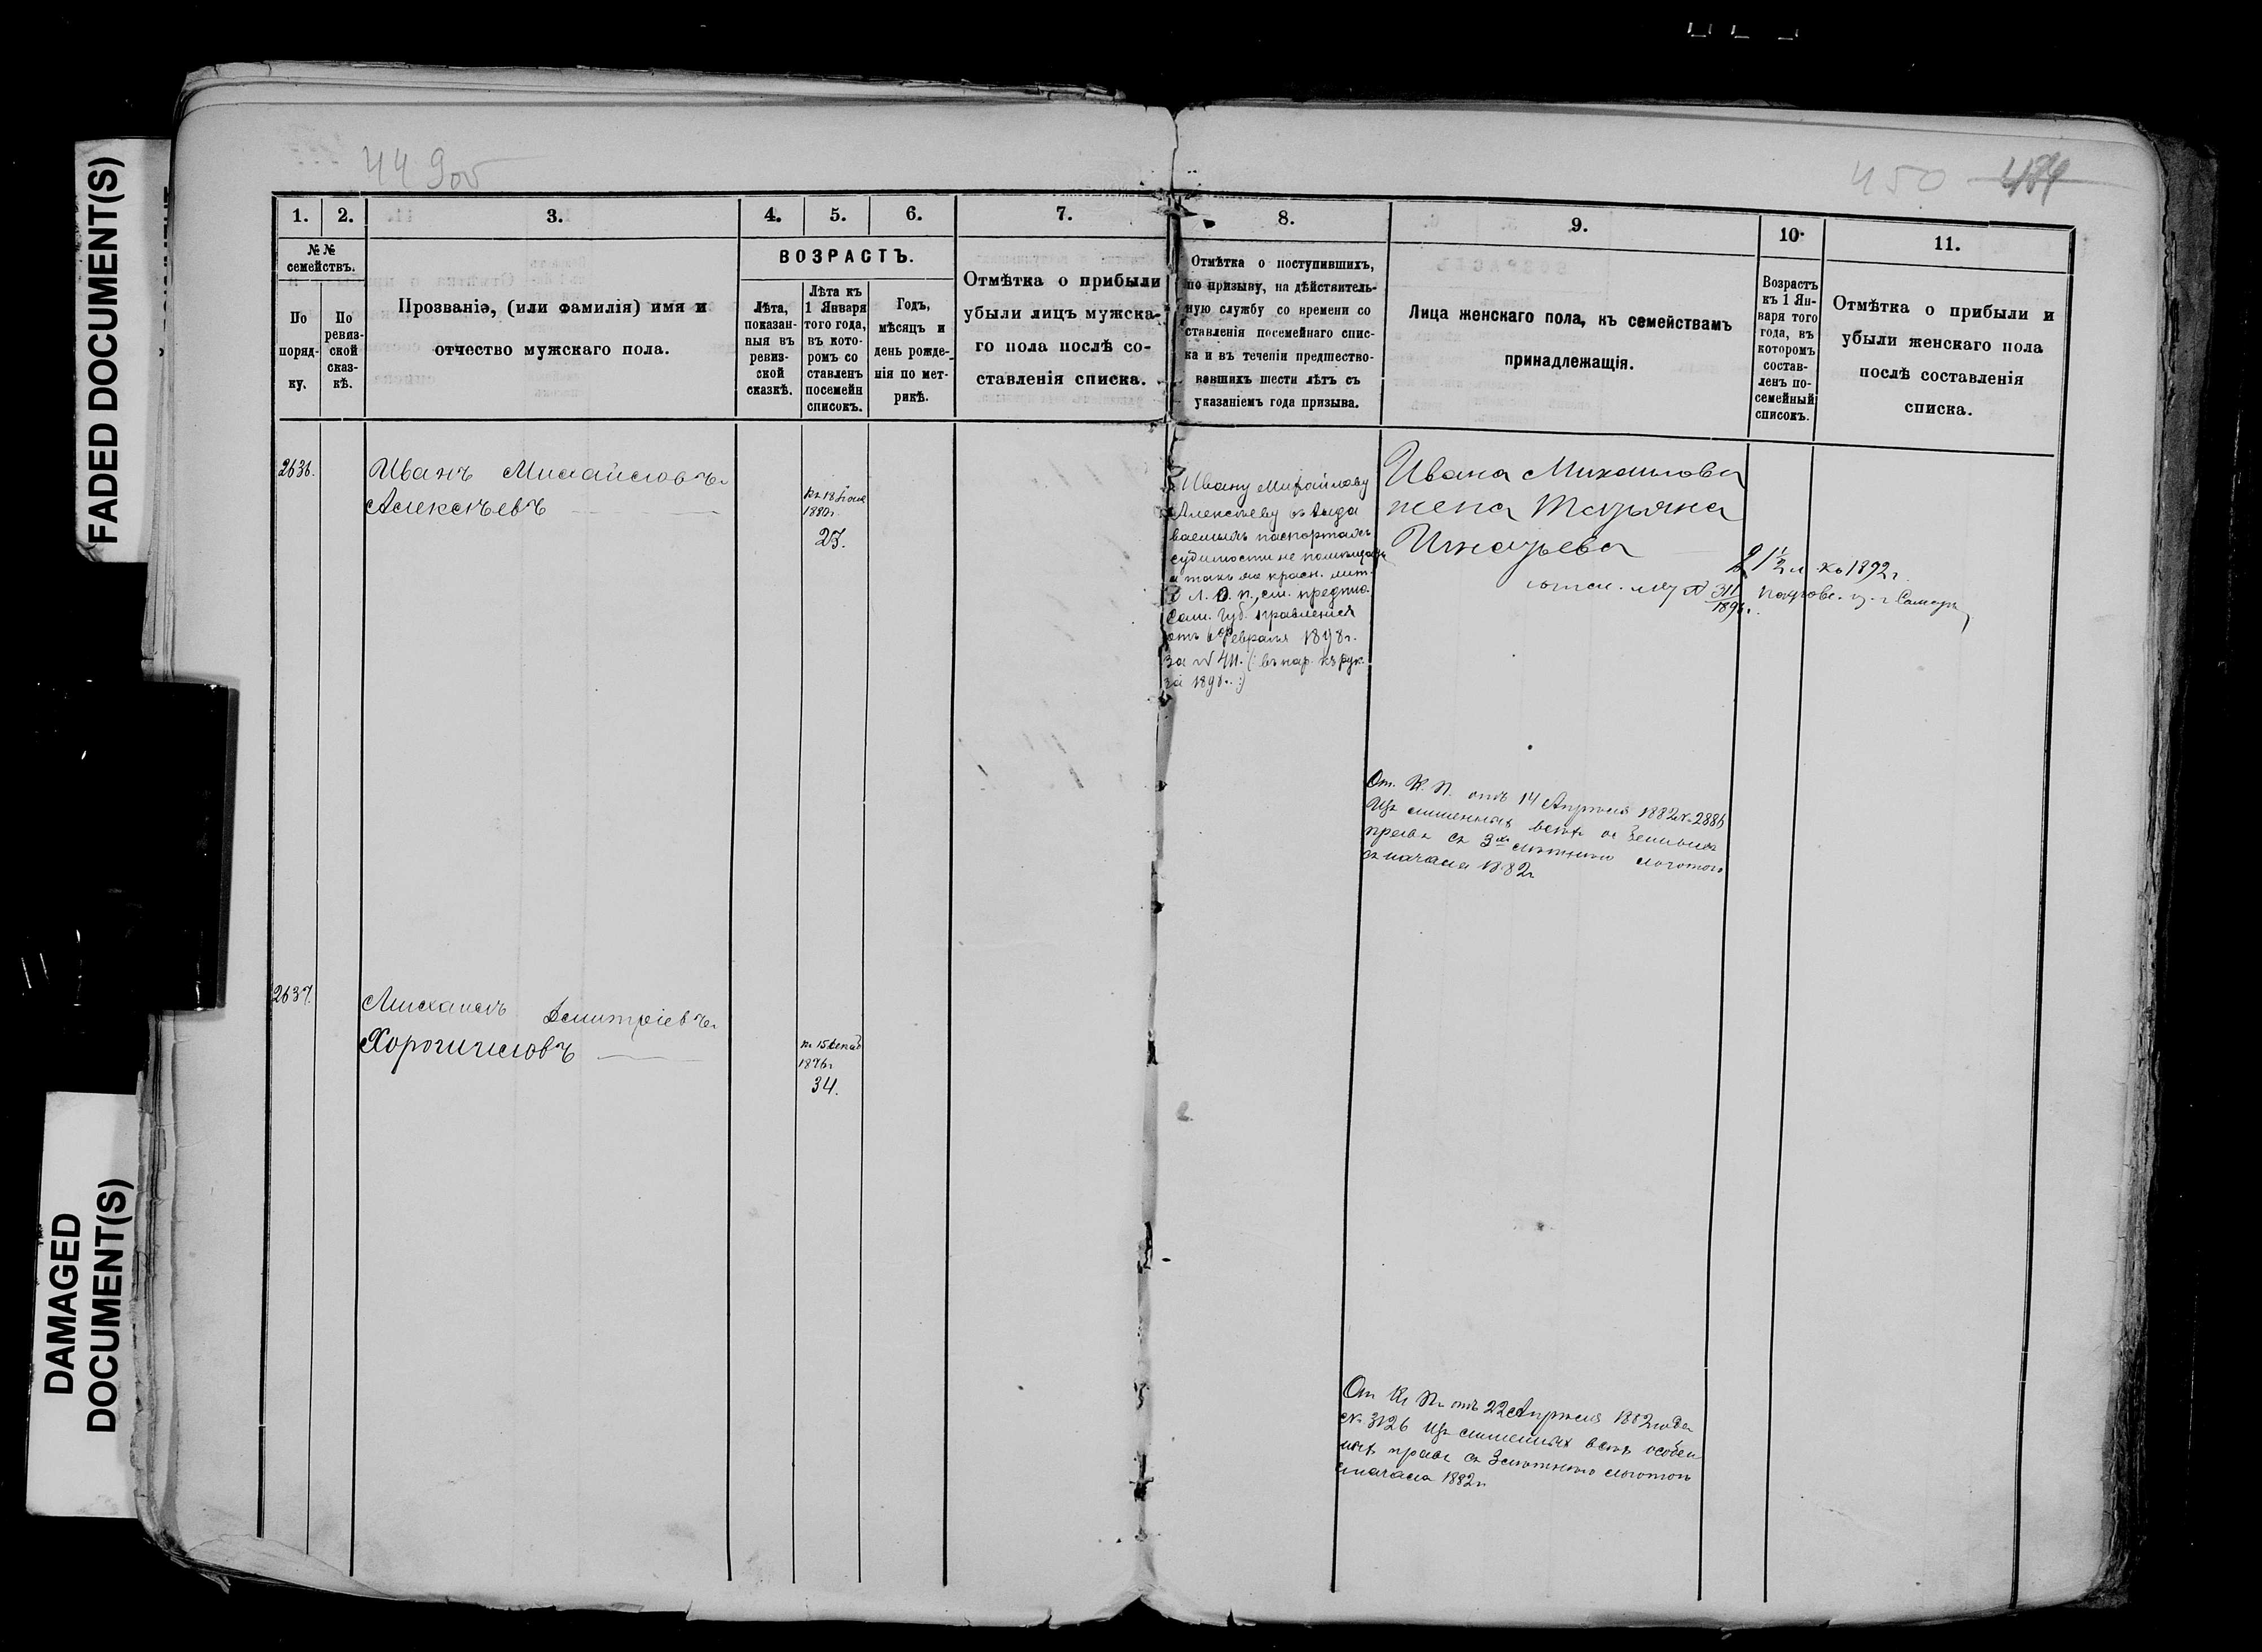 FADED DOCUMENT(S)
DAMAGED
DOCUMENT(S)
449об
450 484
1. 2. 3. 4. 5. 6. 7.
№ №
семействъ.
По
поряд-
ку.
По
ревиз-
ской
сказ-
кѣ.
Прозваніе, (или фамилія) имя и
отчество мужскаго пола.
ВОЗРАСТЪ.
Лѣта,
показан-
ныя въ
ревиз-
ской
сказкѣ.
Лѣта къ
1 Января
того года,
въ кото-
ромъ со
ставленъ
посемейн
списокъ.
Годъ,
мѣсяцъ и
день рожде-
нія по мет-
рикѣ.
Отмѣтка о прибыли
убыли лицъ мужска-
го пола послѣ со-
ставленія списка.
8. 9. 10. 11.
Отмѣтка о поступившихъ,
по призыву, на дѣйствитель-
ную службу со времени со
ставленія посемейнаго спис-
ка и въ теченіи предшество-
вавшихъ шести лѣтъ съ
указаніемъ года призыва.
Лица женскаго пола, къ семействамъ
принадлежащія.
Возрастъ
къ 1 Ян-
варя того
года, въ
которомъ
состав-
ленъ по-
семейный
списокъ.
Отмѣтка о прибыли и
убыли женскаго пола
послѣ составленія
списка.
2636.
Иванъ Михайловъ
Алексѣевъ
1880г.
27.
Ивану Михайлову
Алексѣеву въ выда
ваемыхъ паспортахъ
судимости не помѣщать
а такъ же красн.
см. предпис.
Сам. Губ. Правленія
отъ 6 Февраля 1898г.
за № 411. (: въ нар. къ рук.
за 1898г. :)
Ивана Михайлова
жена Татьяна
Игнатьева
21 1/2 л къ 1892г.
311
189
г. Самары
От. К. П. отъ 14 Апрѣля 1882 № 2886
Изъ лишенныхъ всѣхъ
правъ съ 3хъ лѣтнею льготою
съ начала 1882г
2637.
Михаилъ Дмитріевъ
Хорошиловъ
1876г
34.
От К. П. отъ 22 Апрѣля 1882 года
№ 3126 Изъ лишенныхъ всѣхъ особен
ныхъ правъ съ 3 лѣтнею льготою
съ начала 1882г